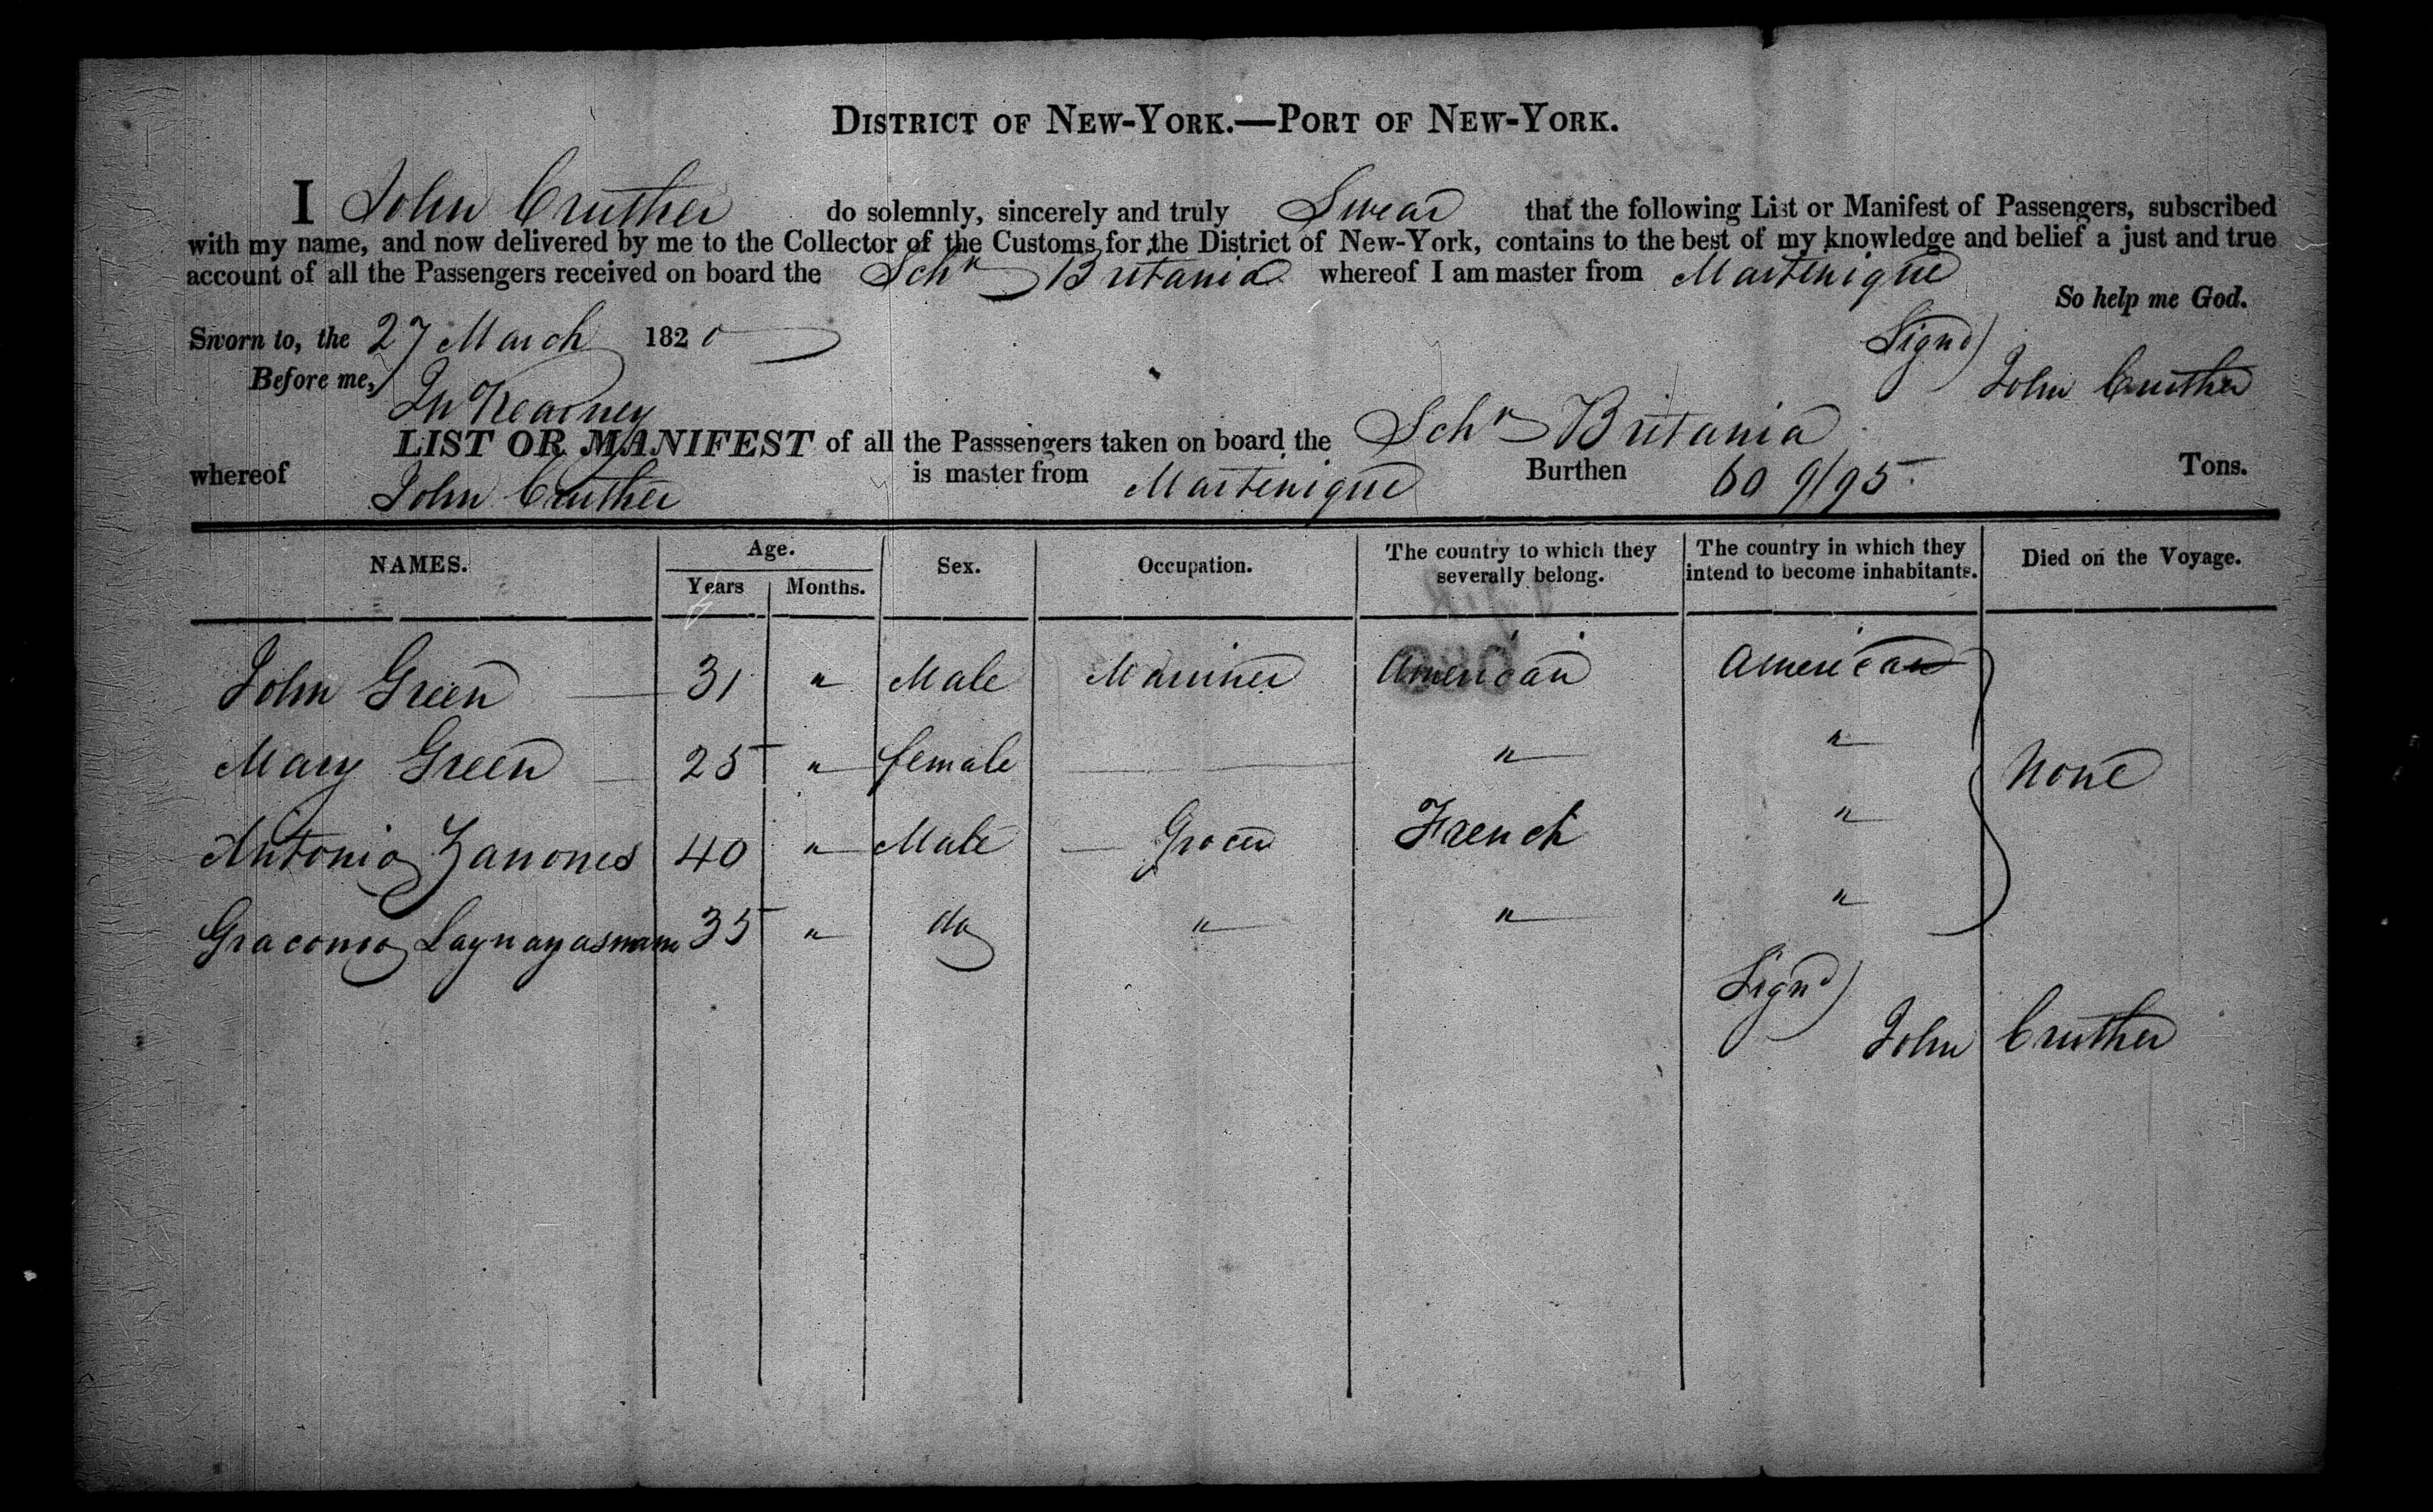 DISTRICT OF NEW-YORK.—PORT OF NEW-YORK.
I John Cruther do solemnly, sincerely and truly Swear that the following List or Manifest of Passengers, subscribed
with my name, and now delivered by me to the Collector of the Customs for the District of New-York, contains to the best of my knowledge and belief a just and true
account of all the Passengers received on board the Schr Britania whereof I am master from Martenique
So help me God.
Sworn to, the 27 March 1820
Signd
Before me, Kearney
John Cruther
LIST OR MANIFEST of all the Passsengers taken on board the Schr Britania
whereof John Cruther is master from Martenique Burthen 60 9/95 Tons.
NAMES. Age. Sex. Occupation. The country to which they severally belong. The country in which they intend to become inhabitants. Died on the Voyage.
Years Months.
John Green 31 " Male Mariner American American
Mary Green 25 " female " " None
Antonio Zanones 40 " Male Grocer French "
Graconio 35 " do " " "
Signd
John Cruther